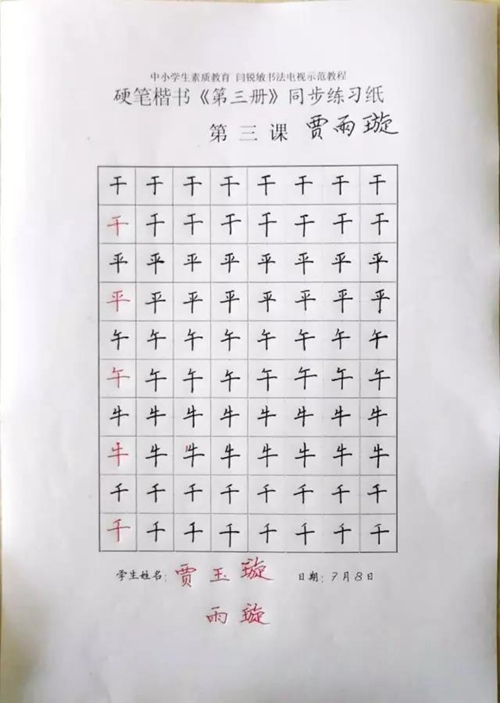 中小学生素质教育 闫锐敏书法电视示范教程
硬笔楷书《第三册》同步练习纸
第三课 贾雨璇
干干干干干干干干
干干干干干干干干
平平平平平平平平
平平平平平平平平
午午午午午午午午
午午午午午午午午
牛牛牛牛牛牛牛牛
牛牛牛牛牛牛牛牛
千千千千千千千千
千千千千千千千千
学生姓名: 贾玉璇 日期: 7月8日
雨璇